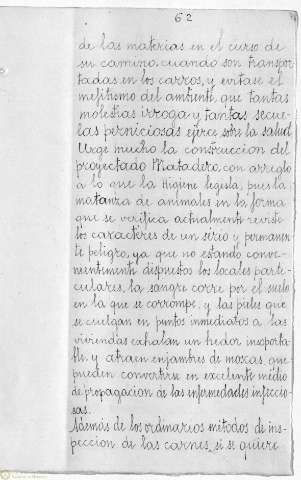 62
de las materias en el curso de
su camino, cuando son transpor
tadas en los carros, y evitase el
mefitismo del ambiente, que tantas
molestias irroga y tantas secue-
las perniciosas ejerce sobre la salud.
Urge mucho la construcción del
proyectado Matadero, con arreglo
a lo que la Higiene legisla, pues la
matanza de animales en la forma
que se verifica actualmente reviste
los caractéres de un serio y permanen-
te peligro, ya que no estando conve-
nientemente dispuestos los locales parti-
culares, la sangre corre por el suelo
en la que se corrompe, y las pieles que
se cuelgan en puntos inmediatos a las
viviendas exhalan un hedor insoporta-
ble y atraen enjambres de moscas que
pueden convertirse en excelente medio
de propagación de las enfermedades infeccio-
sas.
Además de los ordinarios métodos de ins-
pección de las carnes, si se quiere